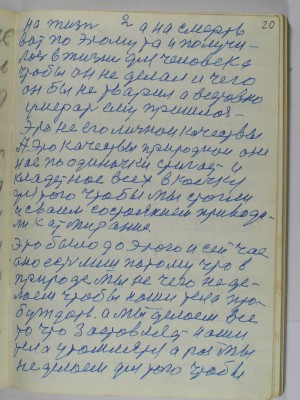 2 20
на жизнь а на смерть
вот по этому та и получи-
лось в жизни для человека
чтобы он не делал и чего
он бы не творил а всеравно
умерать ему пришлось-
Это не его личное качества
А это качества природное они
нас по одиночки стигает и
кладет нас всех в кочку
для того чтобы мы стогли
и своем состоянием приводи-
ли к отмирание
Это было до этого и сейчас
оно есть или потому что в
природе мы не чего не де-
лаем чтобы наши тела про-
буждать. а мы делаем все
то что заставляет наши
тела утомлять а раз мы
не делаем для того чтобы